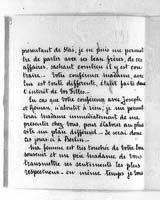 présentant de Stal, je ne puis me permet
tre de parler avec ses beau frères, de ces
affaires, sachant combien il y est con-
traire. Votre conférence madame, avec
lui est toute différente, établit faite dans
l'intérêt de vos filles.
En cas que votre conférence avec Joseph
et Roman, n'aboutit à rien, je me permet
trai madame immédiatement de me
présenter chez vous, pour élaborer au plus
vite un plan différent. Je serai donc
ces jours ci à Berlin.
Ma femme est très touchée de votre bon
souvenir et me prie madame de vous
transmettre ses sentiments les plus
respectueux en même temps je vous